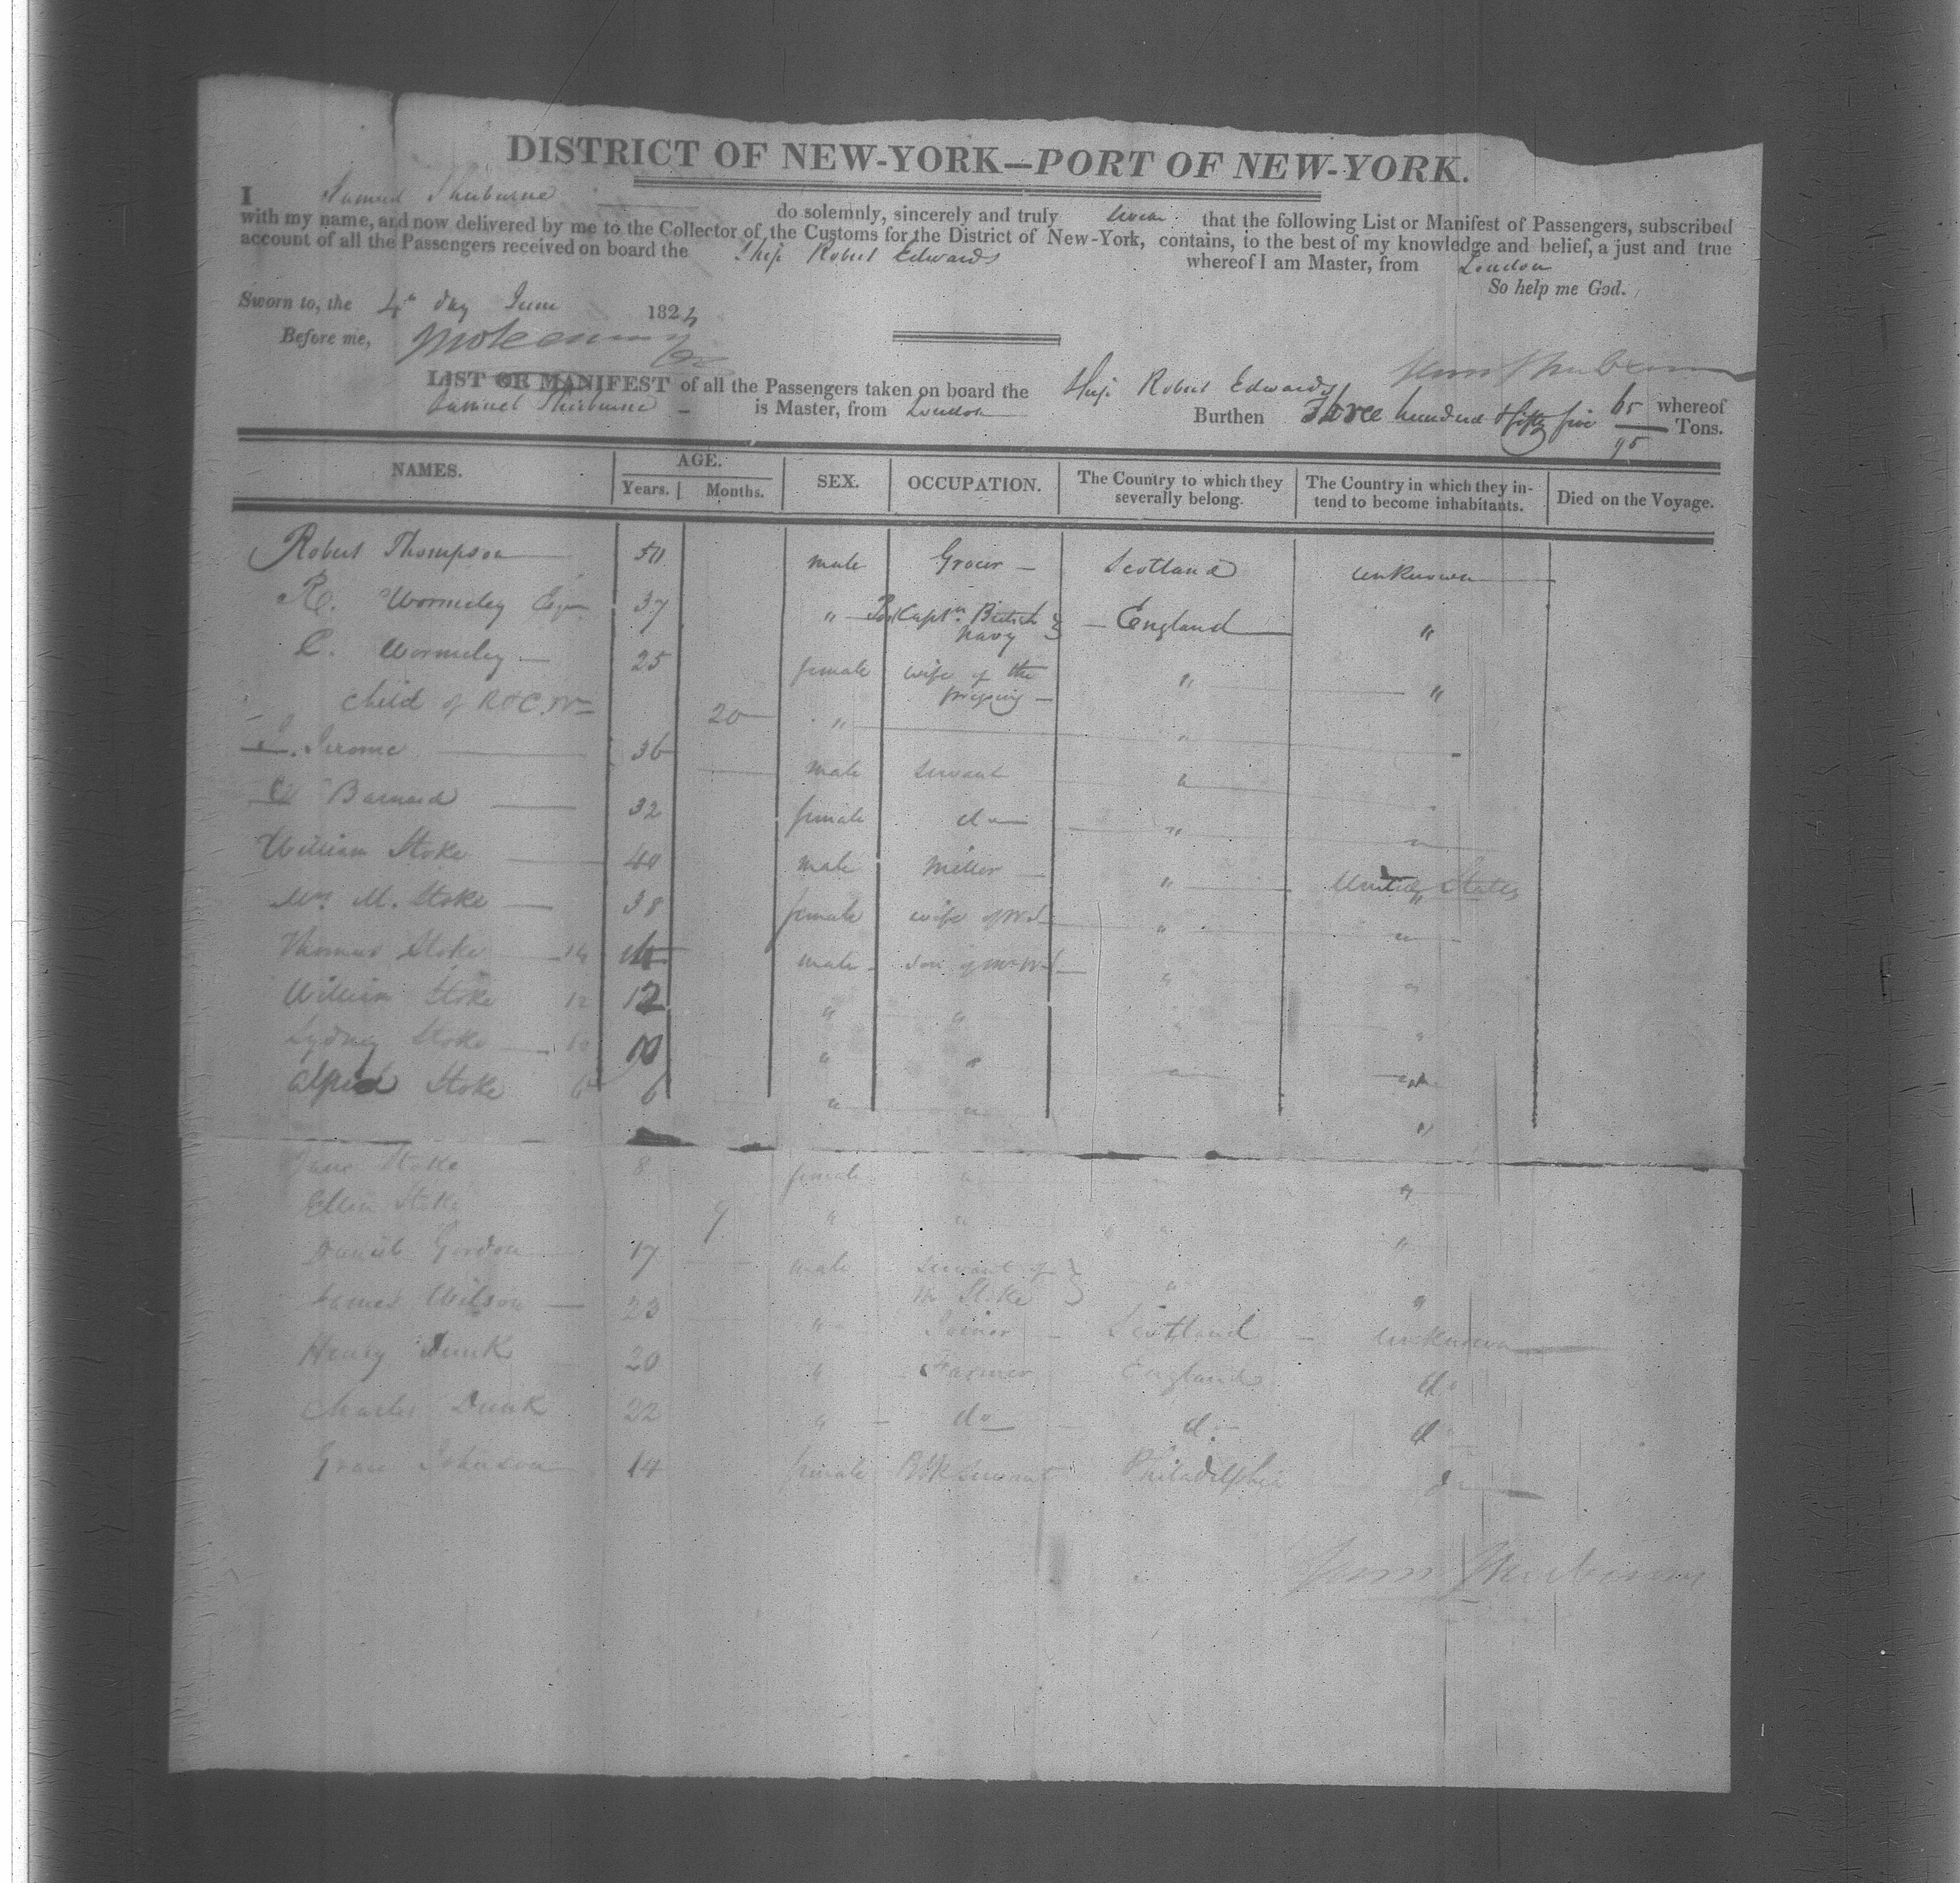 DISTRICT OF NEW-YORK—PORT OF NEW-YORK.
I Samuel Sherburne do solemnly, sincerely and truly swear that the following List or Manifest of Passengers, subscribed
with my name, and now delivered by me to the Collector of the Customs for the District of New-York, contains, to the best of my knowledge and belief, a just and true
account of all the Passengers received on board the Ship Robert Edwards whereof I am Master, from London
So help me God.
Sworn to, the 4th day June 1824
Before me,
LIST OR MANIFEST of all the Passengers taken on board the Ship Robert Edwards whereof
Samuel Sherburne is Master, from London Burthen Three hundred & fifty five 65/95 Tons.
NAMES. AGE. Years. Months. SEX. OCCUPATION. The Country to which they severally belong. The Country in which they intend to become inhabitants. Died on the Voyage.
Robert Thompson 50 male Grocer Scotland unknown
R. Wormeley Esqr 37 " Captn. British Navy England "
C. Wormeley 25 female wife of the " "
child of R & C. W 20 " "
Jerome 36 male servant "
Barnard 32 female do " "
William Stoke 40 male Miller " United States
Mrs M. Stoke 38 female wife of W S " "
Thomas Stoke 14 male son of Mr W S " "
William Stoke 12 12 " " " "
Sydney Stoke 10 10 " " " "
Alfred Stoke 6 6 " " "
Jane Stoke 8 female " "
Ellen Stoke 9 " " " "
Daniel Gordon 17 male servant of Mr Stoke " "
James Wilson 23 " Joiner Scotland unknown
Henry Dunk 20 " Farmer England do
Charles Dunk 22 " do do do
Grace Johnson 14 female servant Philadelphia do
Saml Sherburne